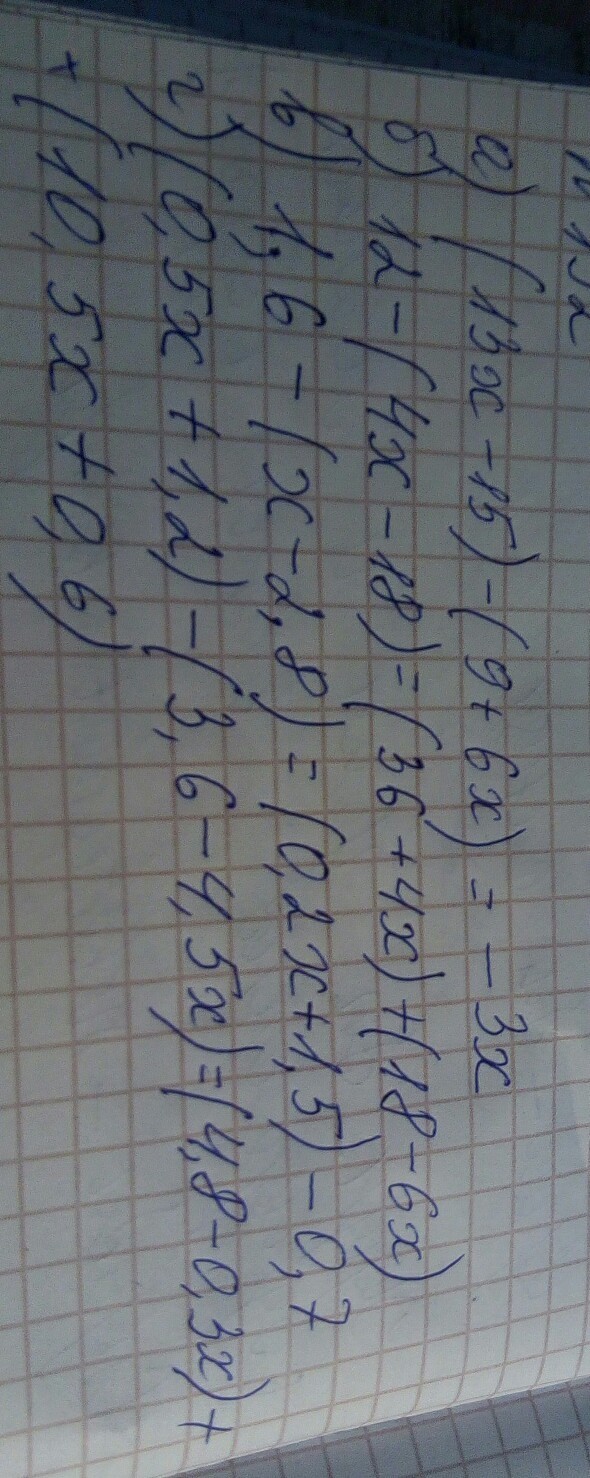 а) (13x - 15) - (9 + 6x) = - 3x
б) 12 - (4x - 18) = (36 + 4x) + (18 - 6x)
в) 1,6 - (x - 2,8) = (0,2x + 1,5) - 0,7
г) (0,5x + 1,2) - (3,6 - 4,5x) = (4,8 - 0,3x) +
+ (10,5x + 0,6)